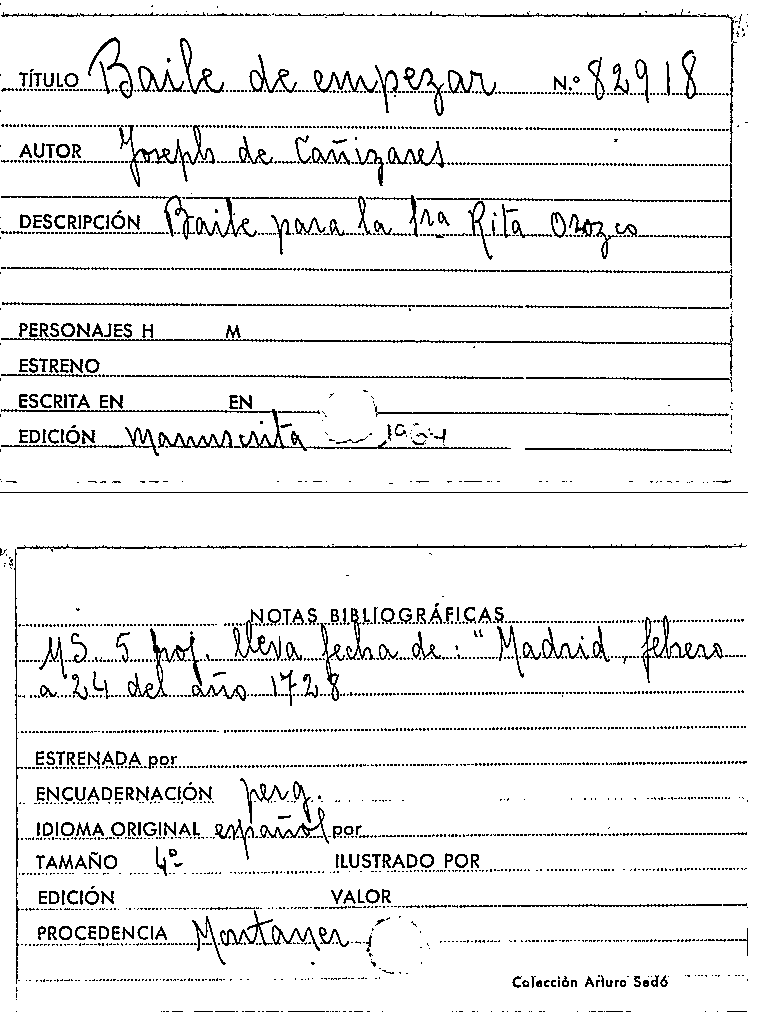 TÍTULO Baile de empezar N.º 82918
AUTOR Joseph de Cañizares
DESCRIPCIÓN Baile para la Sra Rita Orozco
PERSONAJES H M
ESTRENO
ESCRITA EN EN
EDICIÓN manuscrita
NOTAS BIBLIOGRÁFICAS
MS. 5 hoj. lleva fecha de: "Madrid, febrero
a 24 del año 1728
ESTRENADA por
ENCUADERNACIÓN perg.
IDIOMA ORIGINAL español por
TAMAÑO 4º ILUSTRADO POR
EDICIÓN VALOR
PROCEDENCIA Montaner
Colección Arturo Sedó